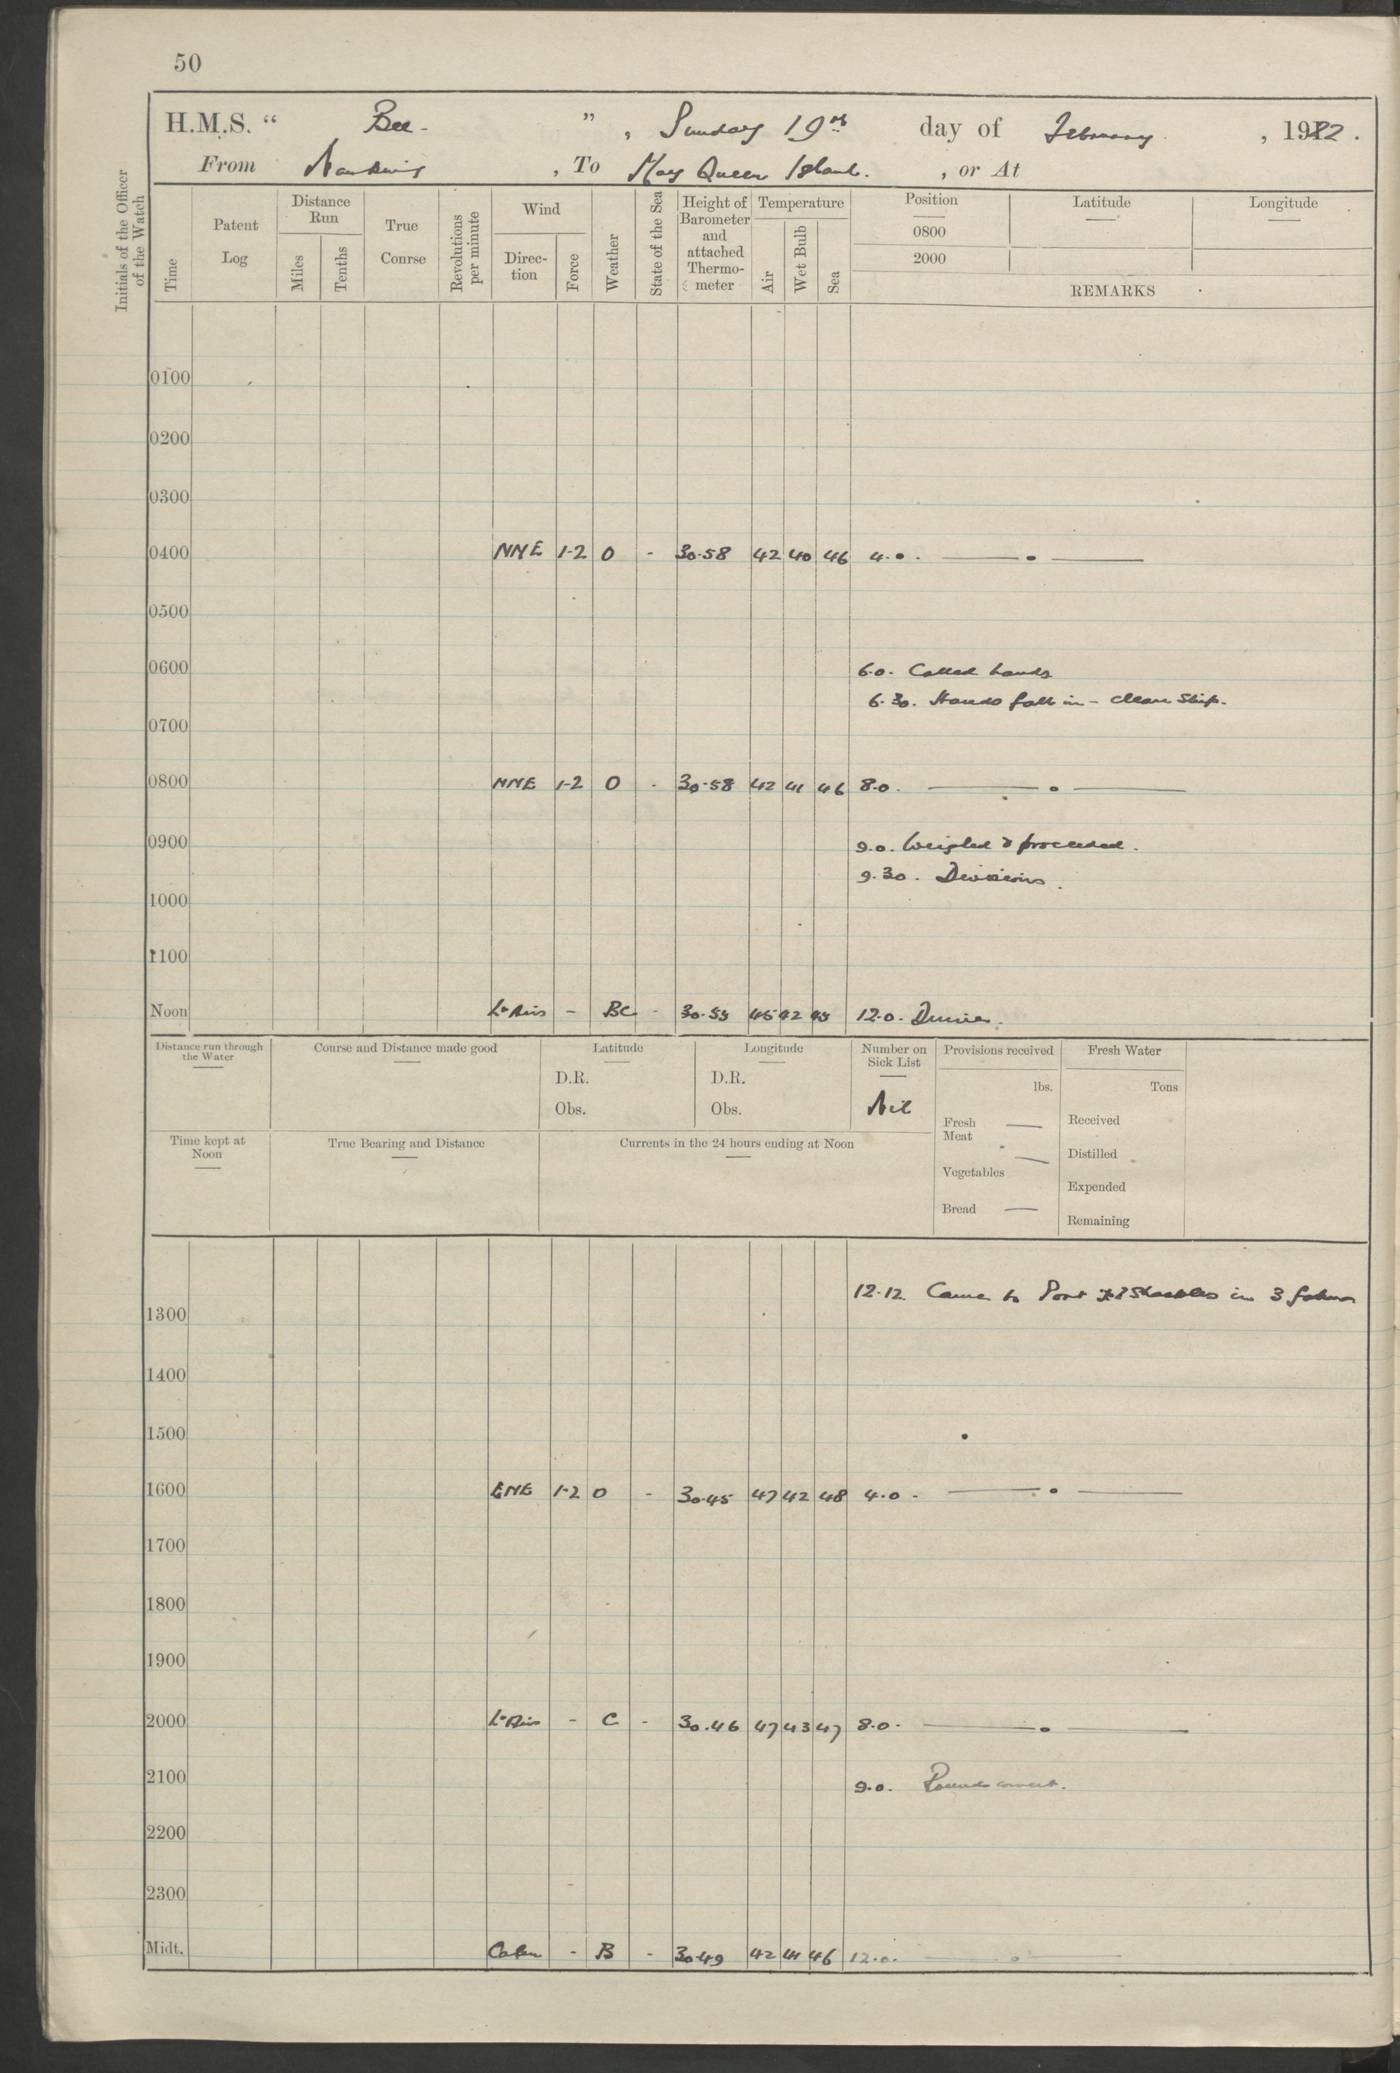 50
H.M.S. “ Bee. ”, Sunday 19th day of February, 1922.
From Nanking, To May Queen Island., or At
Initials of the Officer of the Watch
Time
Patent Log
Distance Run
Miles
Tenths
True Course
Revolutions per minute
Wind
Direction
Force
Weather
State of the Sea
Height of Barometer and attached Thermometer
Temperature
Air
Wet Bulb
Sea
Position Latitude Longitude
0800
2000
REMARKS
0100
0200
0300
0400 NNE 1-2 O - 30.58 42 40 46 4.0. — • —
0500
0600 6.0. Called hands
6.30. Hands fall in - clean Ship.
0700
0800 NNE 1-2 O - 30.58 42 41 46 8.0. — • —
0900 9.0. Weighed & proceeded.
9.30. Divisions.
1000
1100
Noon Lt Airs - BC - 45 42 12.0. Dinner.
Distance run through the Water
Course and Distance made good
Latitude
D.R.
Obs.
Longitude
D.R.
Obs.
Number on Sick List
Nil
Provisions received
lbs.
Fresh Meat —
Vegetables —
Bread —
Fresh Water
Tons
Received
Distilled
Expended
Remaining
Time kept at Noon
True Bearing and Distance
Currents in the 24 hours ending at Noon
12.12. Came to Port Shackles in 3 fathoms
1300
1400
1500
1600 ENE 1-2 O - 30.45 47 42 48 4.0. — • —
1700
1800
1900
2000 Lt Airs - C - 30.46 47 43 47 8.0. — • —
2100 9.0. Rounds correct.
2200
2300
Midt. Calm - B - 30.49 42 41 46 12.0. — • —